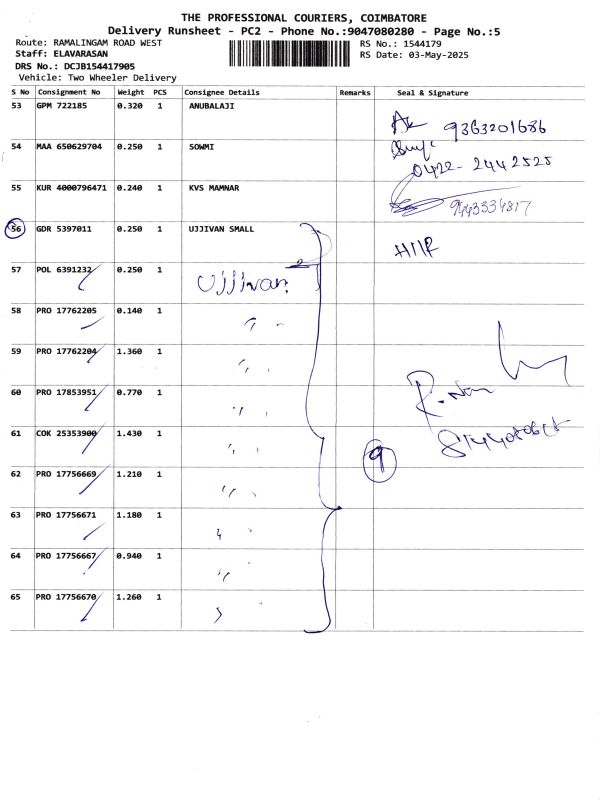 THE PROFESSIONAL COURIERS, COIMBATORE
Delivery Runsheet - PC2 - Phone No.:9047080280 - Page No.:5
Route: RAMALINGAM ROAD WEST
Staff: ELAVARASAN
DRS No.: DCJB154417905
Vehicle: Two Wheeler Delivery
RS No.: 1544179
RS Date: 03-May-2025
S No Consignment No Weight PCS Consignee Details Remarks Seal & Signature
53 GPM 722185 0.320 1 ANUBALAJI
9363201686
54 MAA 650629704 0.250 1 SOWMI
0422-2442525
55 KUR 4000796471 0.240 1 KVS MAMNAR
9443334817
56 GDR 5397011 0.250 1 UJJIVAN SMALL
57 POL 6391232 0.250 1 Ujjivan
58 PRO 17762205 0.140 1 〃
59 PRO 17762204 1.360 1 〃
60 PRO 17853951 0.770 1 〃
61 COK 25353900 1.430 1 〃
9
62 PRO 17756669 1.210 1 〃
63 PRO 17756671 1.180 1 〃
64 PRO 17756667 0.940 1 〃
65 PRO 17756670 1.260 1 〃